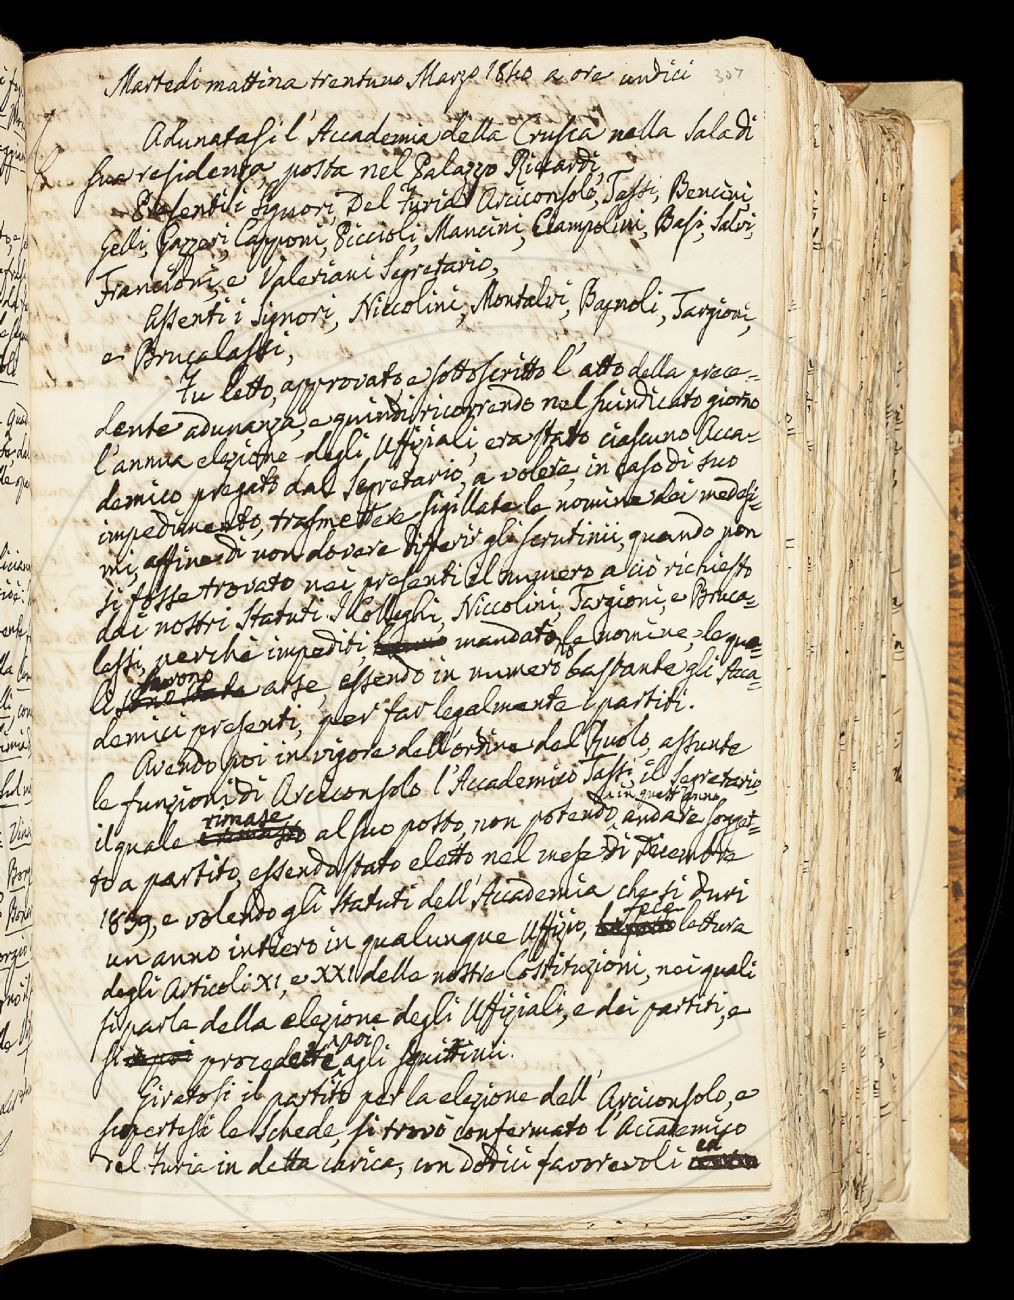 Martedì mattina trentuno Marzo 1840 a ore undici
307
Adunatasi l'Accademia della Crusca nella sala di
sua residenza, posta nel Palazzo Riccardi,
Presenti i Signori, Del Furia Arciconsolo, Tassi, Bencini,
Gelli, Gazzeri, Capponi, Piccioli, Mancini, Ciampolini, Basi, Salvi,
Francioni, e Valeriani Segretario,
Assenti i Signori, Niccolini, Montalvi, Bagnoli, Targioni,
e Brucalassi,
Fu letto, approvato e sottoscritto l'atto della prece=
dente adunanza, e quindi ricorrendo nel suindicato giorno
l'annua elezione degli Uffiziali, era stato ciascuno Acca=
demico pregato dal Segretario, a volere, in caso di suo
impedimento, trasmettere sigillate le nomine dei medesi=
mi, affine di non dovere differir gli scrutinii, quando non
si fosse trovato nei presenti il numero a ciò richiesto
dai nostri Statuti. I Colleghi, Niccolini, Targioni, e Bruca=
lassi, perchè impediti, mandato le nomine, le qua=
furono
li sono state arse, essendo in numero bastante gli Acca=
demici presenti, per far legalmente i partiti.
Avendo poi in vigore dell'ordine del Ruolo, assunte
le funzioni di Arciconsolo l'Accademico Tassi, il Segretario,
rimase in quest'anno
il quale è rimasto al suo posto, non potendo andare sogget=
to a partito, essendo stato eletto nel mese di Dicembre
1839, e volendo gli Statuti dell'Accademia che si duri
fece
un anno intiero in qualunque Uffizio, ha fatto lettura
degli Articoli XI, e XXI delle nostre Costituzioni, nei quali
si parla della elezione degli Uffiziali, e dei partiti, e
poi
si è poi procedette agli squittinii.
Giratosi il partito per la elezione dell'Arciconsolo, e
scopertesi le schede, si trovò confermato l'Accademico
ed
Del Furia in detta carica, con dodici favorevoli